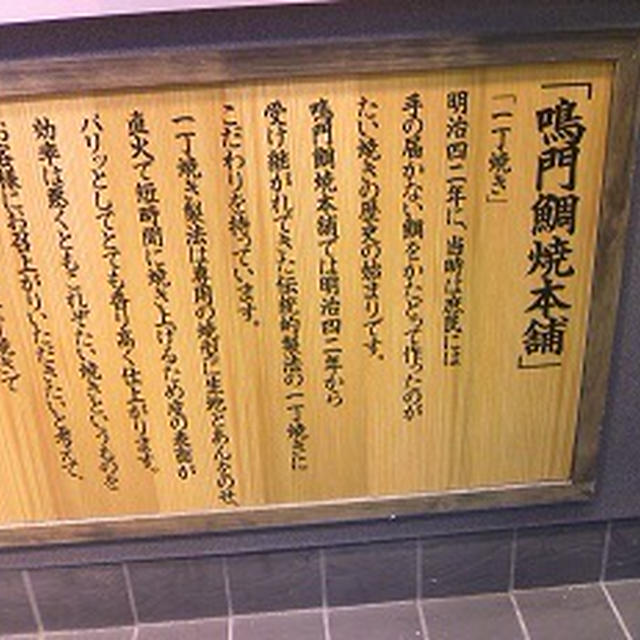 「鳴門鯛焼本舗」
「一丁焼き」
明治四二年に、当時は庶民には
手の届かない鯛をかたどって作ったのが
たい焼きの歴史の始まりです。
鳴門鯛焼本舗では明治四二年から
受け継がれてきた伝統的製法の一丁焼きに
こだわりを持っています。
一丁焼き製法は専用の焼型に生地とあんをのせ、
直火で短時間に焼き上げるため皮の表面が
パリッとしてとても香り高く仕上がります。
効率は悪くともこれぞたい焼きというものを
お客様にお召上がりいただきたいと考えて、